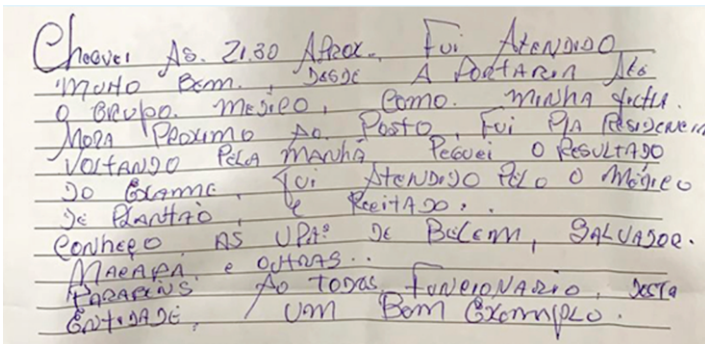 Cheguei As. 21.30 Aprox., Fui Atendido
muito Bem., desde A portaria Até
o Grupo. Medico, como. minha
Mora Proximo Ao Posto, Fui P/A Residencia
Voltando Pela manhã Peguei o Resultado
do Exame, fui Atendido Pelo o Médico
de Plantão, e Receitado..
Conheço, As UPAS de Belem, Salvador.
Macapá, e outras..
Parabens Ao Todos Funcionario, desta
Entidade, um Bom Exemplo.